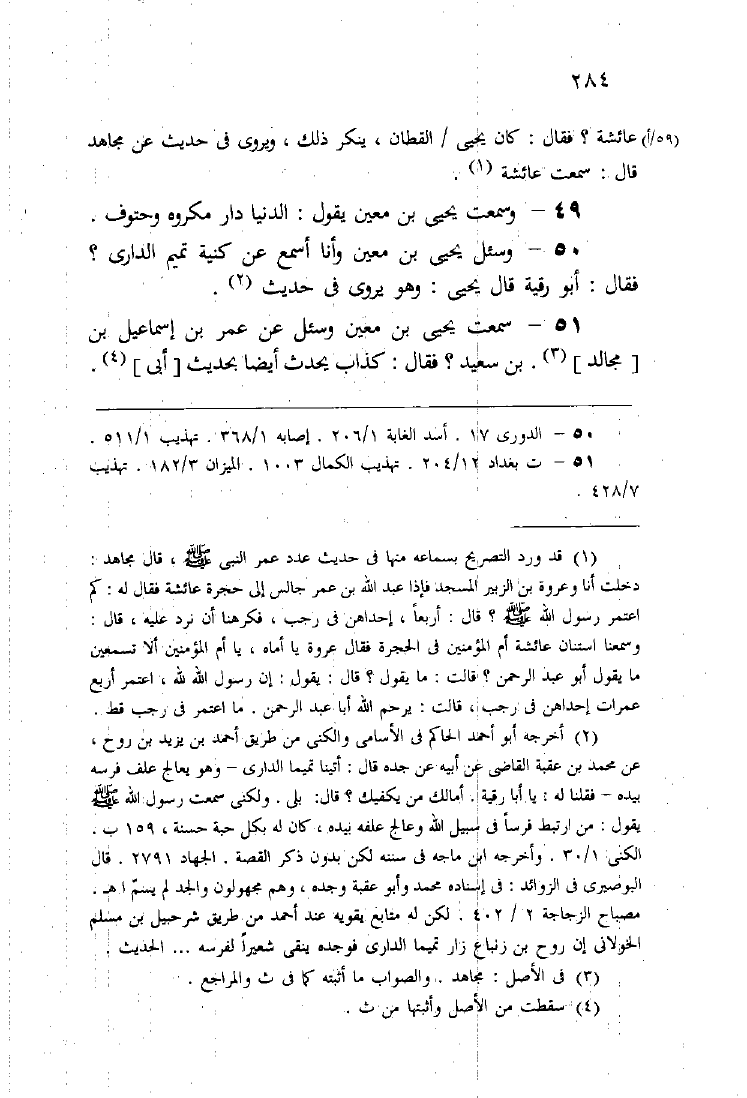 ٢٨٤
(٥٩/أ) عائشة ؟ فقال : كان يحيى / القطان ، ينكر ذلك ، ويروى فى حديث عن مجاهد
قال : سمعت عائشة (١) .
٤٩ – وسمعت يحيى بن معين يقول : الدنيا دار مكروه وحتوف .
٥٠ – وسئل يحيى بن معين وأنا أسمع عن كنية تميم الدارى ؟
فقال : أبو رقية قال يحيى : وهو يروى فى حديث (٢) .
٥١ – سمعت يحيى بن معين وسئل عن عمر بن إسماعيل بن
[ مجالد ] (٣) . بن سعيد ؟ فقال : كذاب يحدث أيضا بحديث [ أبى ] (٤) .
٥٠ – الدورى ١٧ . أسد الغابة ٢٠٦/١ . إصابه ٣٦٨/١ . تهذيب ٥١١/١ .
٥١ – ت بغداد ٢٠٤/١٢ . تهذيب الكمال ١٠٠٣ . الميزان ١٨٢/٣ . تهذيب
٤٢٨/٧ .
(١) قد ورد التصريح بسماعه منها فى حديث عدد عمر النبى ﷺ ، قال مجاهد :
دخلت أنا وعروة بن الزبير المسجد فإذا عبد الله بن عمر جالس إلى حجرة عائشة فقال له : كم
اعتمر رسول الله ﷺ ؟ قال : أربعاً ، إحداهن فى رجب ، فكرهنا أن نرد عليه ، قال :
وسمعنا استنان عائشة أم المؤمنين فى الحجرة فقال عروة يا أماه ، يا أم المؤمنين ألا تسمعين
ما يقول أبو عبد الرحمن ؟ قالت : ما يقول ؟ قال : يقول : إن رسول الله لله ، اعتمر أربع
عمرات إحداهن فى رجب ، قالت : يرحم الله أبا عبد الرحمن . ما اعتمر فى رجب قط .
(٢) أخرجه أبو أحمد الحاكم فى الأسامى والكنى من طريق أحمد بن يزيد بن روح ،
عن محمد بن عقبة القاضى عن أبيه عن جده قال : أتينا تميما الدارى – وهو يعالج علف فرسه
بيده – فقلنا له : يا أبا رقية . أمالك من يكفيك ؟ قال: بلى . ولكنى سمعت رسول الله ﷺ
يقول : من ارتبط فرساً فى سبيل الله وعالج علفه بيده ، كان له بكل حبة حسنة ، ١٥٩ ب .
الكنى ٣٠/١ . وأخرجه ابن ماجه فى سننه لكن بدون ذكر القصة . الجهاد ٢٧٩١ . قال
البوصيرى فى الزوائد : فى إسناده محمد وأبو عقبة وجده ، وهم مجهولون والجد لم يسمّ اهـ .
مصباح الزجاجة ٢ / ٤٠٢ . لكن له متابع يقويه عند أحمد من طريق شرحبيل بن مسلم
الخولانى إن روح بن زنباع زار تميما الدارى فوجده ينقى شعيراً لفرسه ... الحديث .
(٣) فى الأصل : مجاهد . والصواب ما أثبته كما فى ث والمراجع .
(٤) سقطت من الأصل وأثبتها من ث .